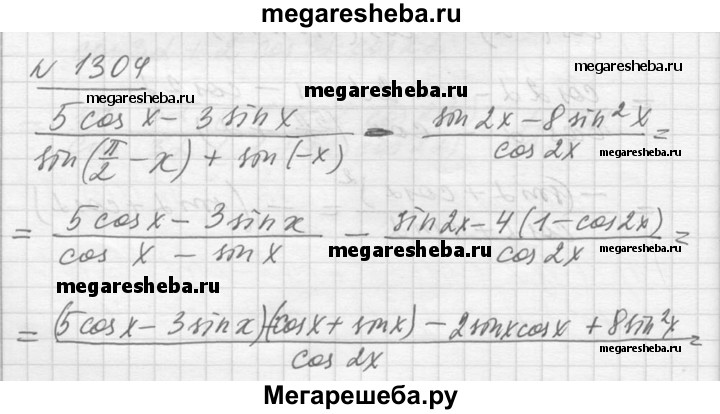 megaresheba.ru
N 1304
megaresheba.ru megaresheba.ru megaresheba.ru
(5 cos x - 3 sin x)/(sin(π/2 - x) + sin(-x)) - (sin 2x - 8 sin² x)/(cos 2x) =
megaresheba.ru
= (5 cos x - 3 sin x)/(cos x - sin x) - (sin 2x - 4(1 - cos 2x))/(cos 2x) =
megaresheba.ru megaresheba.ru
= ((5 cos x - 3 sin x)(cos x + sin x) - 2 sin x cos x + 8 sin² x)/(cos 2x) =
megaresheba.ru
Мегарешеба.ру